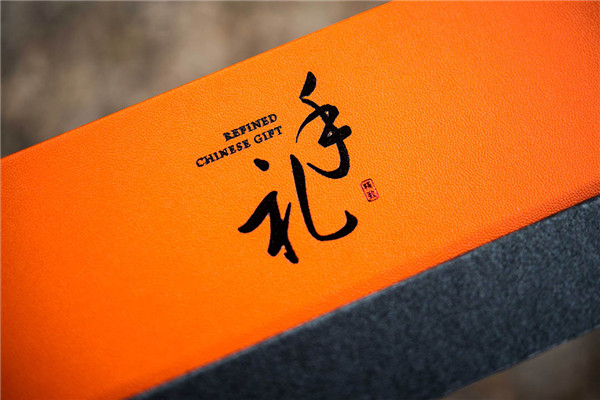 REFINED
CHINESE GIFT
手礼